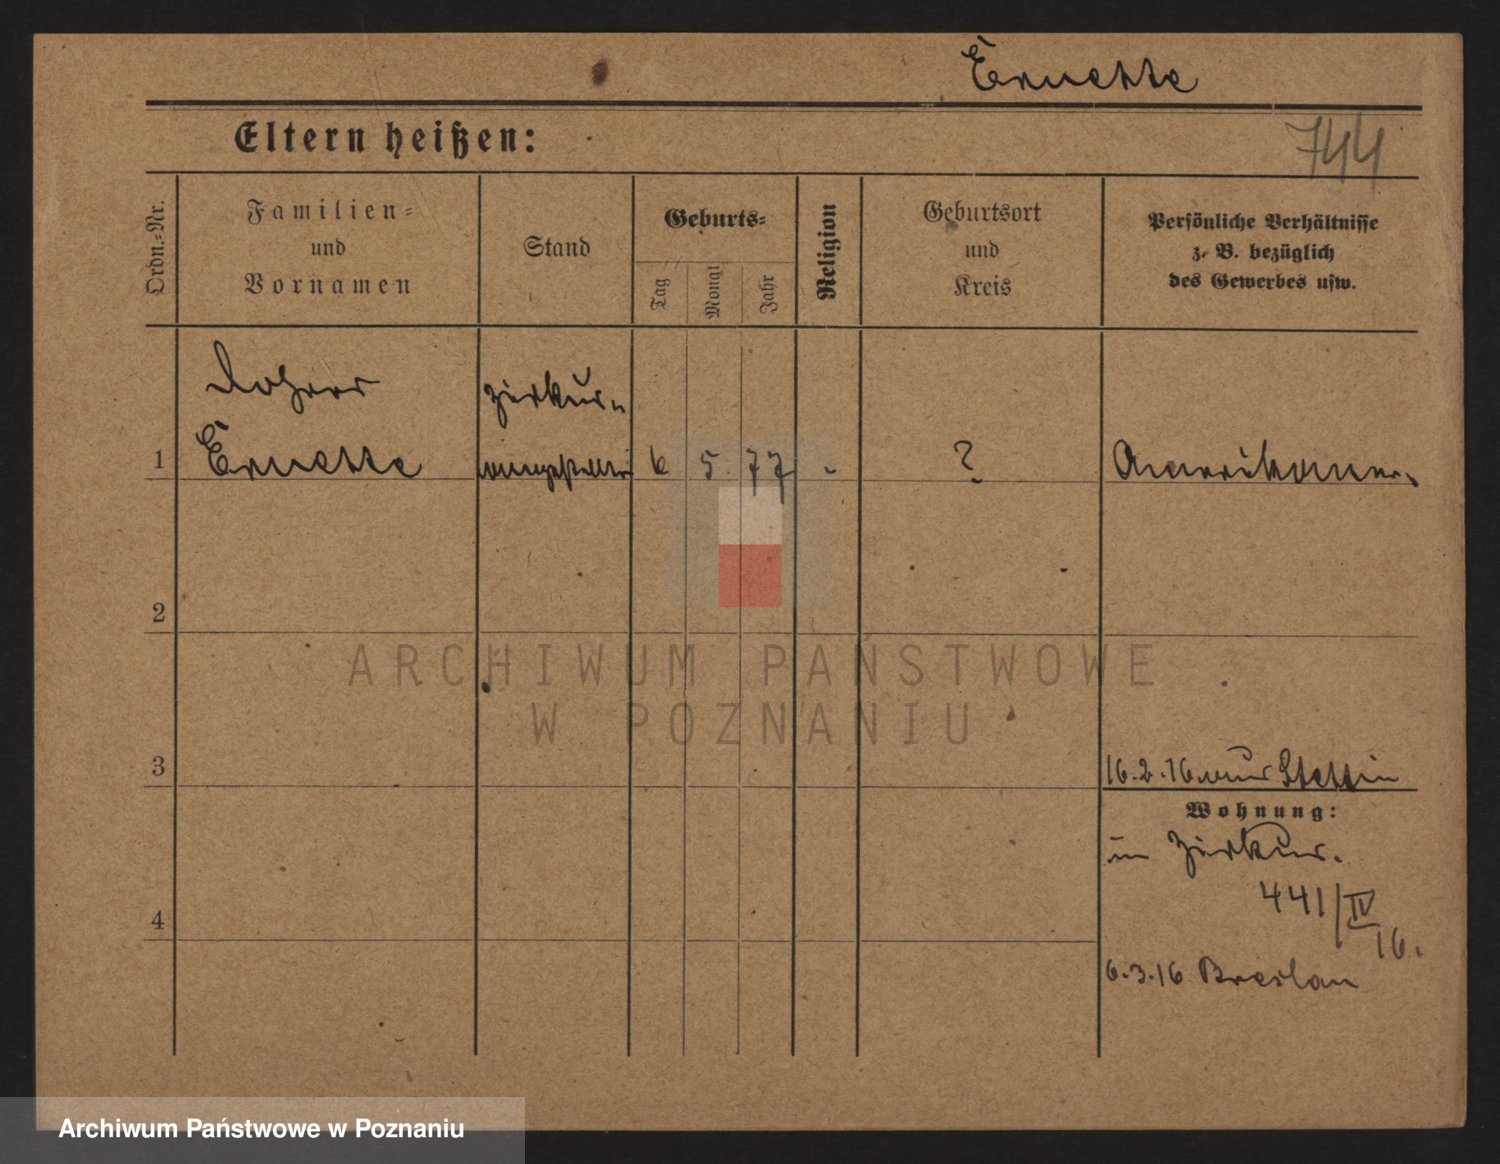 Ernette
744
Eltern heißen:
Ordn.-Nr.
Familien-
und
Vornamen
Stand
Geburts-
Tag
Monat
Jahr
Religion
Geburtsort
und
Kreis
Persönliche Verhältnisse
z. B. bezüglich
des Gewerbes usw.
Zirkus-
1 Ernette angestellter 6 5. 77 - ? Amerikaner.
2
3
16.2.16 aus Stettin
Wohnung:
im Zirkus.
441/IV
16.
4
6.3.16 Breslau
ARCHIWUM PAŃSTWOWE
W POZNANIU
Archiwum Państwowe w Poznaniu